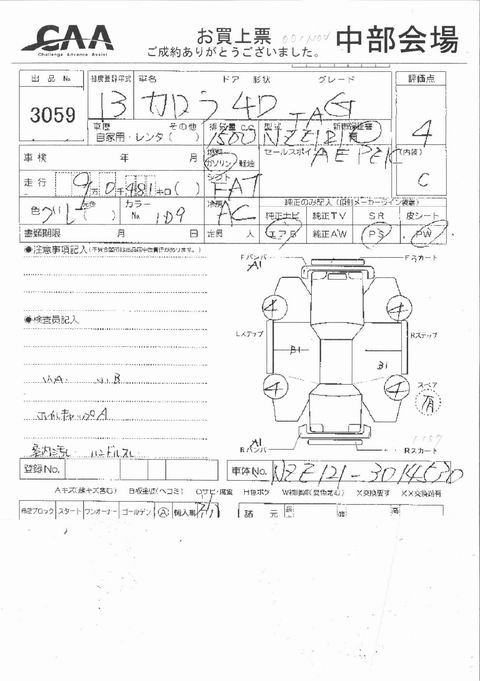 CAA
Challenge Advance Assist
お買上票
ご成約ありがとうございました。
中部会場
出品 No.
3059
初度登録年式 車名 ドア 形状 グレード
13 カローラ 4D TA G
評価点
4
車歴 その他 排気量CC 型式
自家用・レンタ( ) 1500 NZE121
車検 年 月
ガソリン 軽油
セールスポイント AE PEK
(内装)
C
走行 9万0千481キロ( )
シフト FAT
色 グレー( ) カラーNo. 1D9
冷房 AC
純正ナビ 純正TV SR 皮シート
書類期限 月 日
定員 人 エアB 純正AW PS PW
●注意事項記入
●検査員記入
Fバンパ A1
Fスカート
Lステップ
Rステップ
4 4
B1 B1
4 4
スペア
有
小A 小B
ホイルキャップA
A1
Rバンパ
Rスカート
登録No.
車体No. NZE121-3014530
Aキズ(線キズ含む) B板金(ヘコミ)
X交換要す XX交換済有
スタート ワンオーナー ゴールデン A 輸入車
諸元